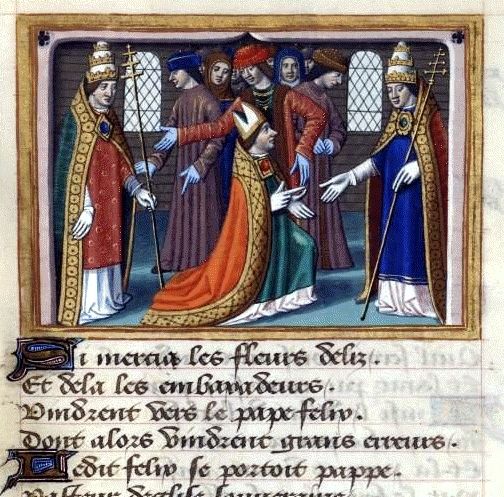 Si mercia les fleurs deliz.
Et dela les embaxadeurs.
Vindrent vers le pape felix.
Dont alors vindrent grans erreurs.
Ledit felix se portoit pappe.
Pasteur deglise